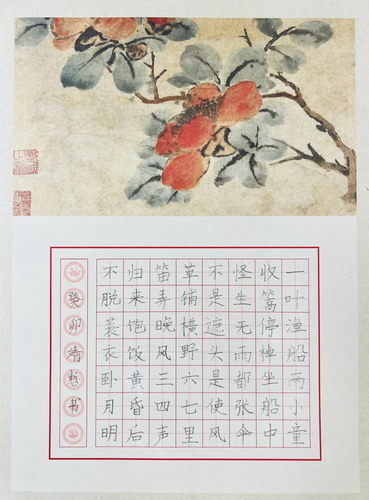 一叶渔船两小童
收篙停棹坐船中
怪生无雨都张伞
不是遮头是使风
草铺横野六七里
笛弄晚风三四声
归来饱饭黄昏后
不脱蓑衣卧月明
癸卯靖书